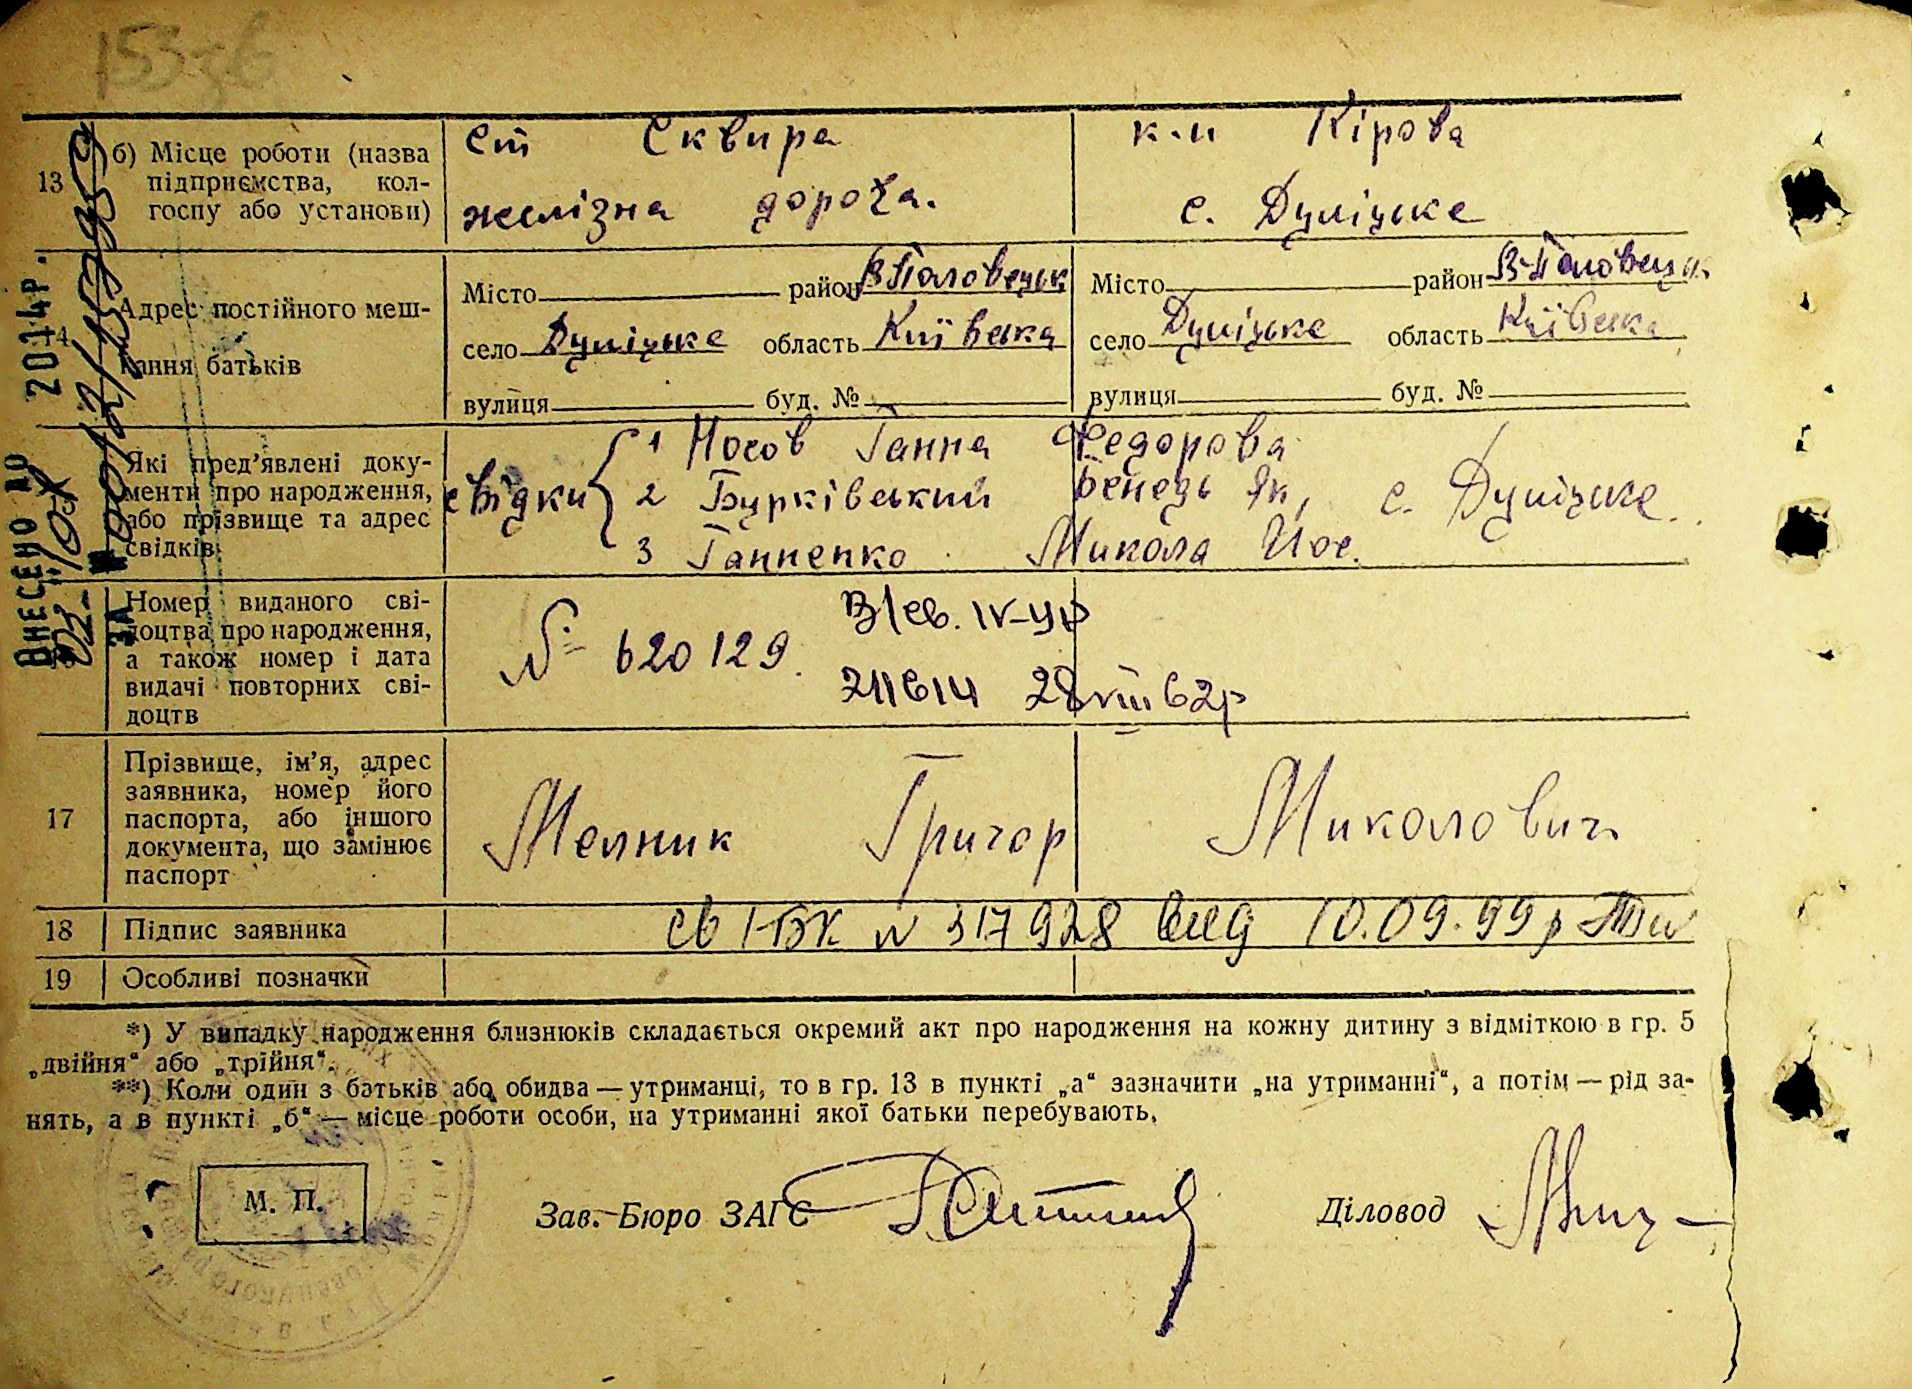 153-6
13
б) Місце роботи (назва
підприємства, кол-
госпу або установи)
ст Сквира
желізна дорога.
к-п Кірова
с. Дуліцьке
14
Адрес постійного меш-
кання батьків
Місто район В Половецьк
село Дуліцьке область Київська
вулиця буд. №
Місто район В-Половецьк.
село Дуліцьке область Київська
вулиця буд. №
Які пред’явлені доку-
менти про народження,
або прізвище та адрес
свідків
свідки
1 Носов Ганна Федорова
2 Бурківський Бенедь Як,
3 Ганненко Микола Йос.
с. Дуліцьке.
Номер виданого сві-
доцтва про народження,
а також номер і дата
видачі повторних сві-
доцтв
№ 620129.
В/св. IV-УР
211614 28 VIII 62р
17
Прізвище, ім’я, адрес
заявника, номер його
паспорта, або іншого
документа, що замінює
паспорт
Мелник Григор Миколович
18
Підпис заявника
св I-БК № 317928 вид 10.09.99р
19
Особливі позначки
*) У випадку народження близнюків складається окремий акт про народження на кожну дитину з відміткою в гр. 5
„двійня“ або „трійня“.
**) Коли один з батьків або обидва — утриманці, то в гр. 13 в пункті „а“ зазначити „на утриманні“, а потім — рід за-
нять, а в пункті „б“ — місце роботи особи, на утриманні якої батьки перебувають.
М. П.
Зав. Бюро ЗАГС
Діловод
ВНЕСЕНО ДО
2014р.
ЗА №